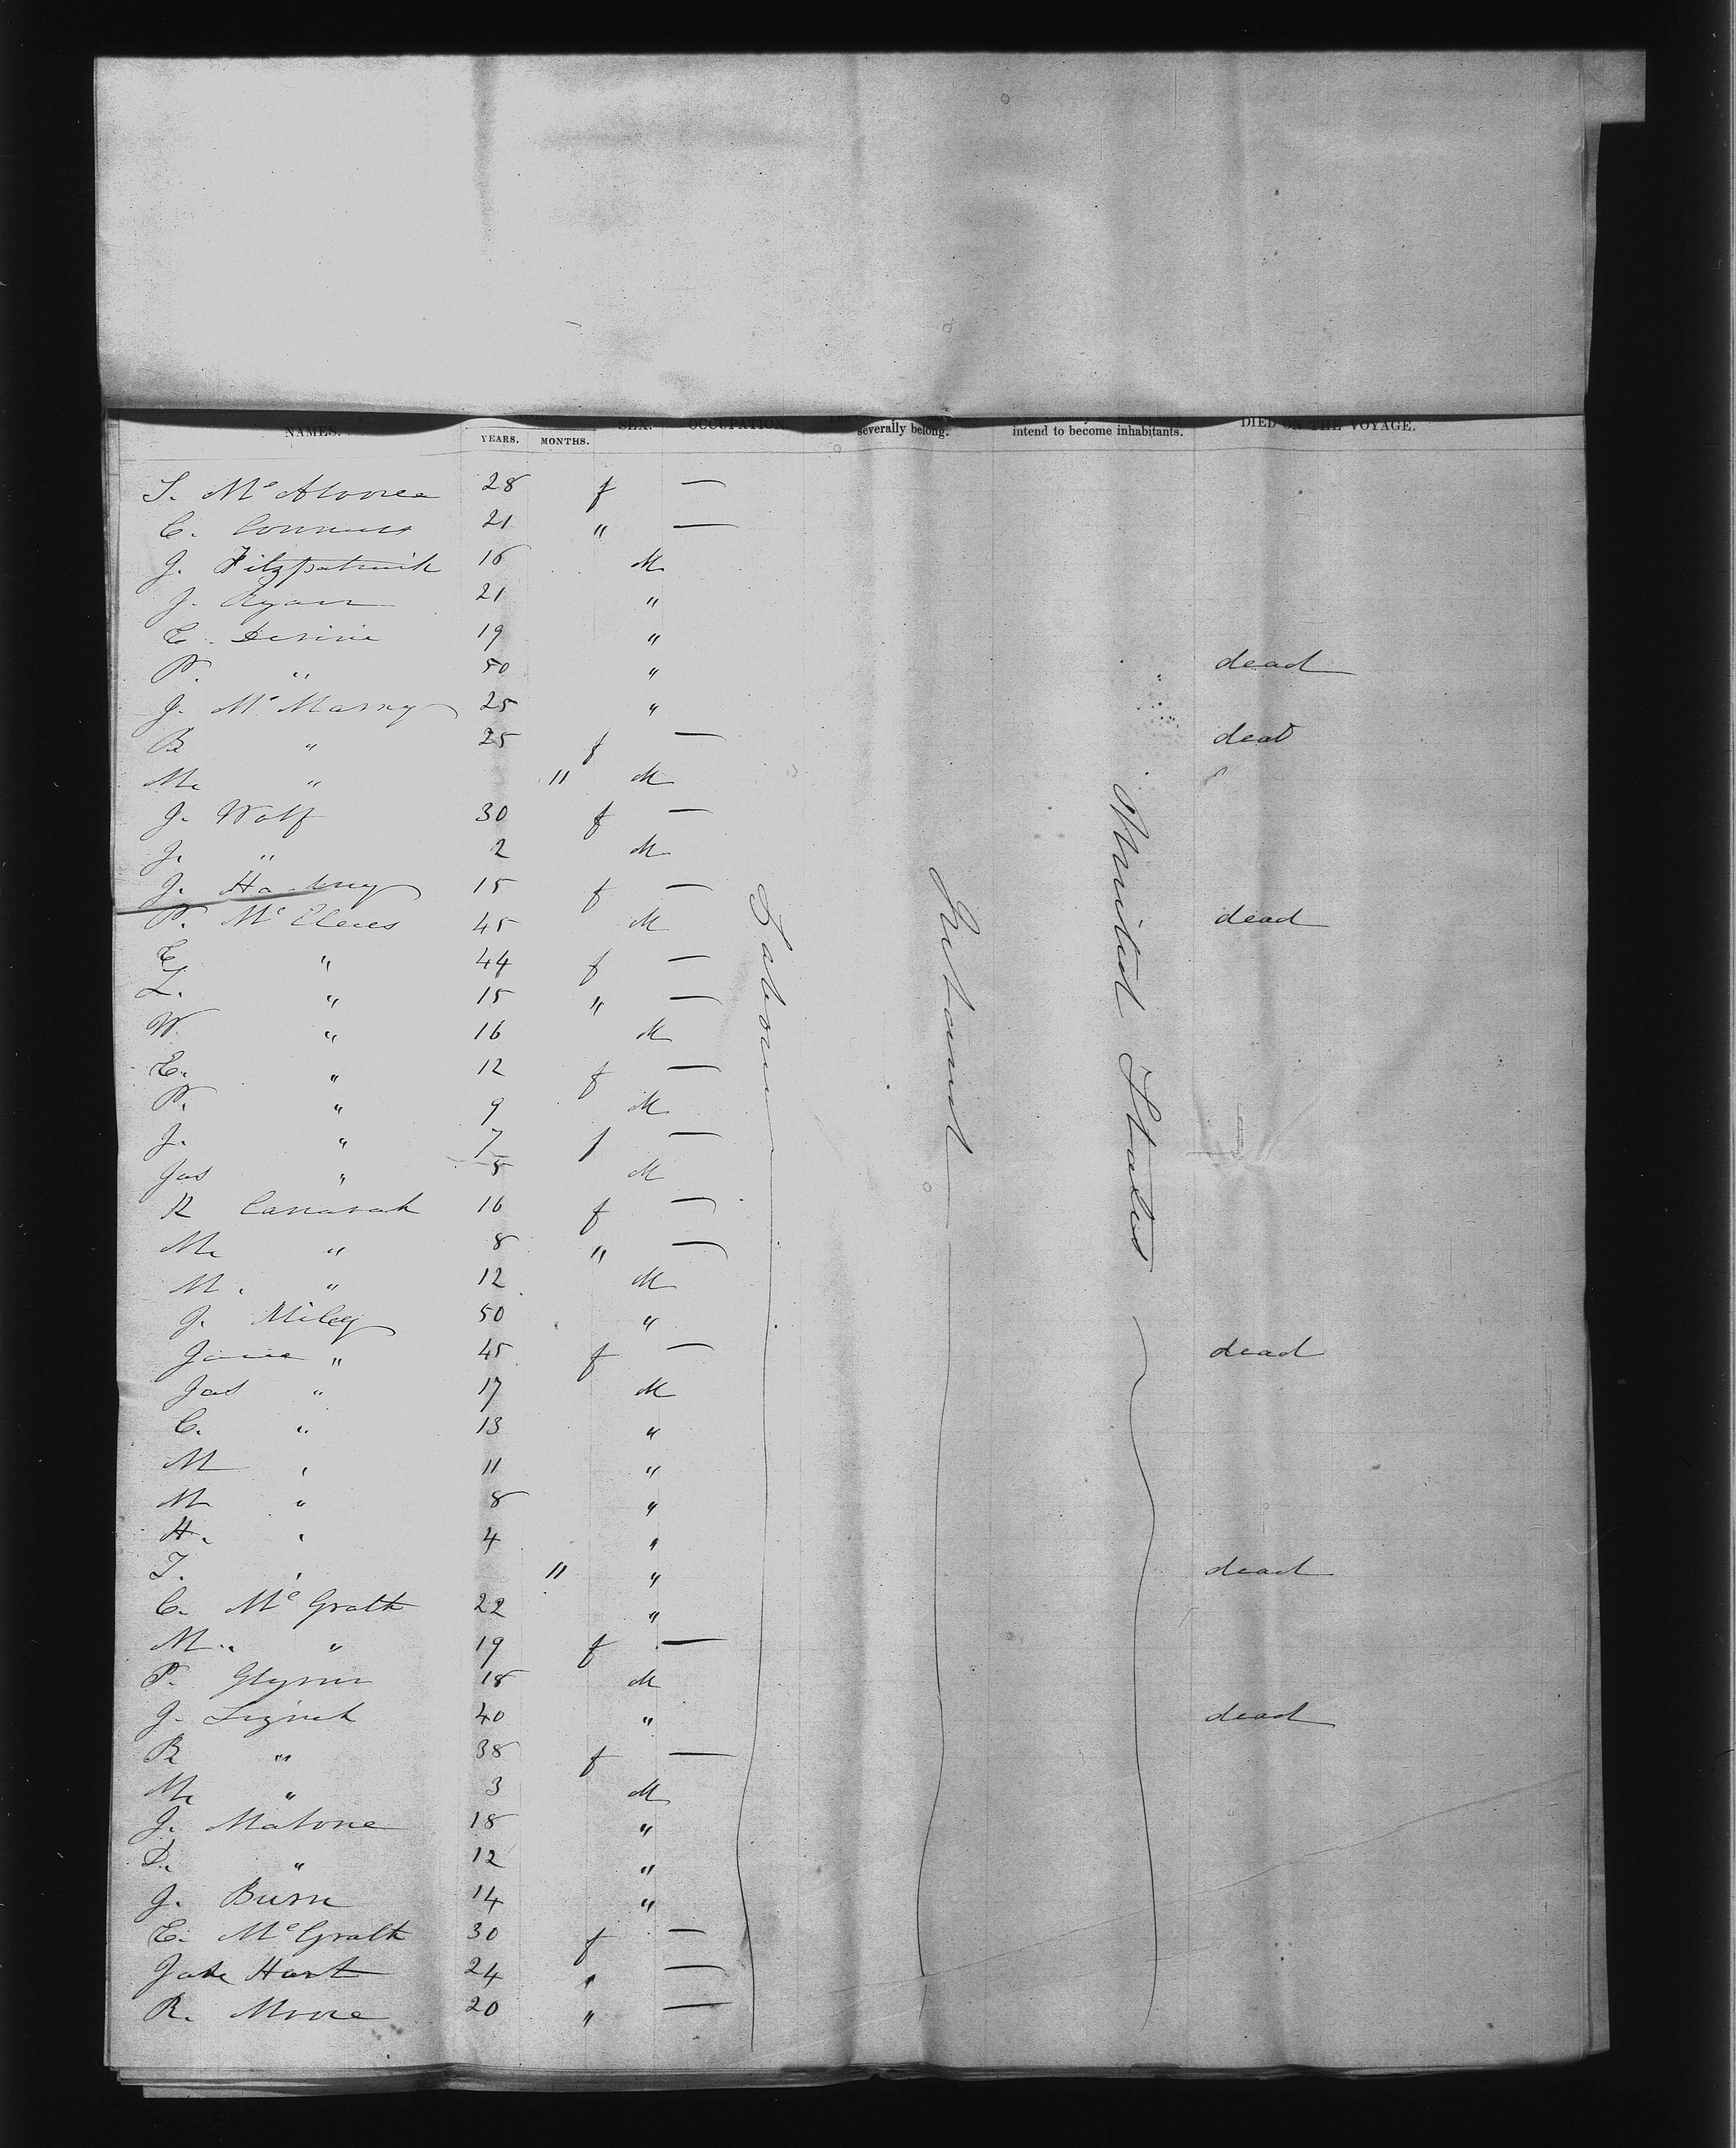 NAMES. YEARS. MONTHS. SEX. OCCUPATION. severally belong. intend to become inhabitants. DIED ON THE VOYAGE.
S. 28 f —
C. 21 " —
J. Fitzpatrick 16 M
J. Ryan 21 "
C. Devine 19 "
P. " 50 " dead
J. 25 "
B " 25 f — dead
M. " 11 M
J. Wolf 30 f —
J. " 2 M
J. 15 f —
P. 45 M dead
E " 44 f —
L. " 15 " —
W " 16 M
E. " 12 f —
P. " 9 M
J. " 7 f —
Jas " 5 M
R Cavanah 16 f —
M. " 8 " —
M. " 12 M
J. Miley 50 "
Jane " 45 f — dead
Jas " 17 M
C. " 13 "
M " 11 "
M " 8 "
H. " 4 "
T. " 11 " dead
C. McGrath 22 "
M. " 19 f —
P. Glynn 18 M
J. 40 " dead
B " 38 f —
M. " 3 M
J. Malone 18 "
D. " 12 "
J. Burn 14 "
E. McGrath 30 f —
Hart 24 " —
R. Moore 20 " —
Ireland
United States